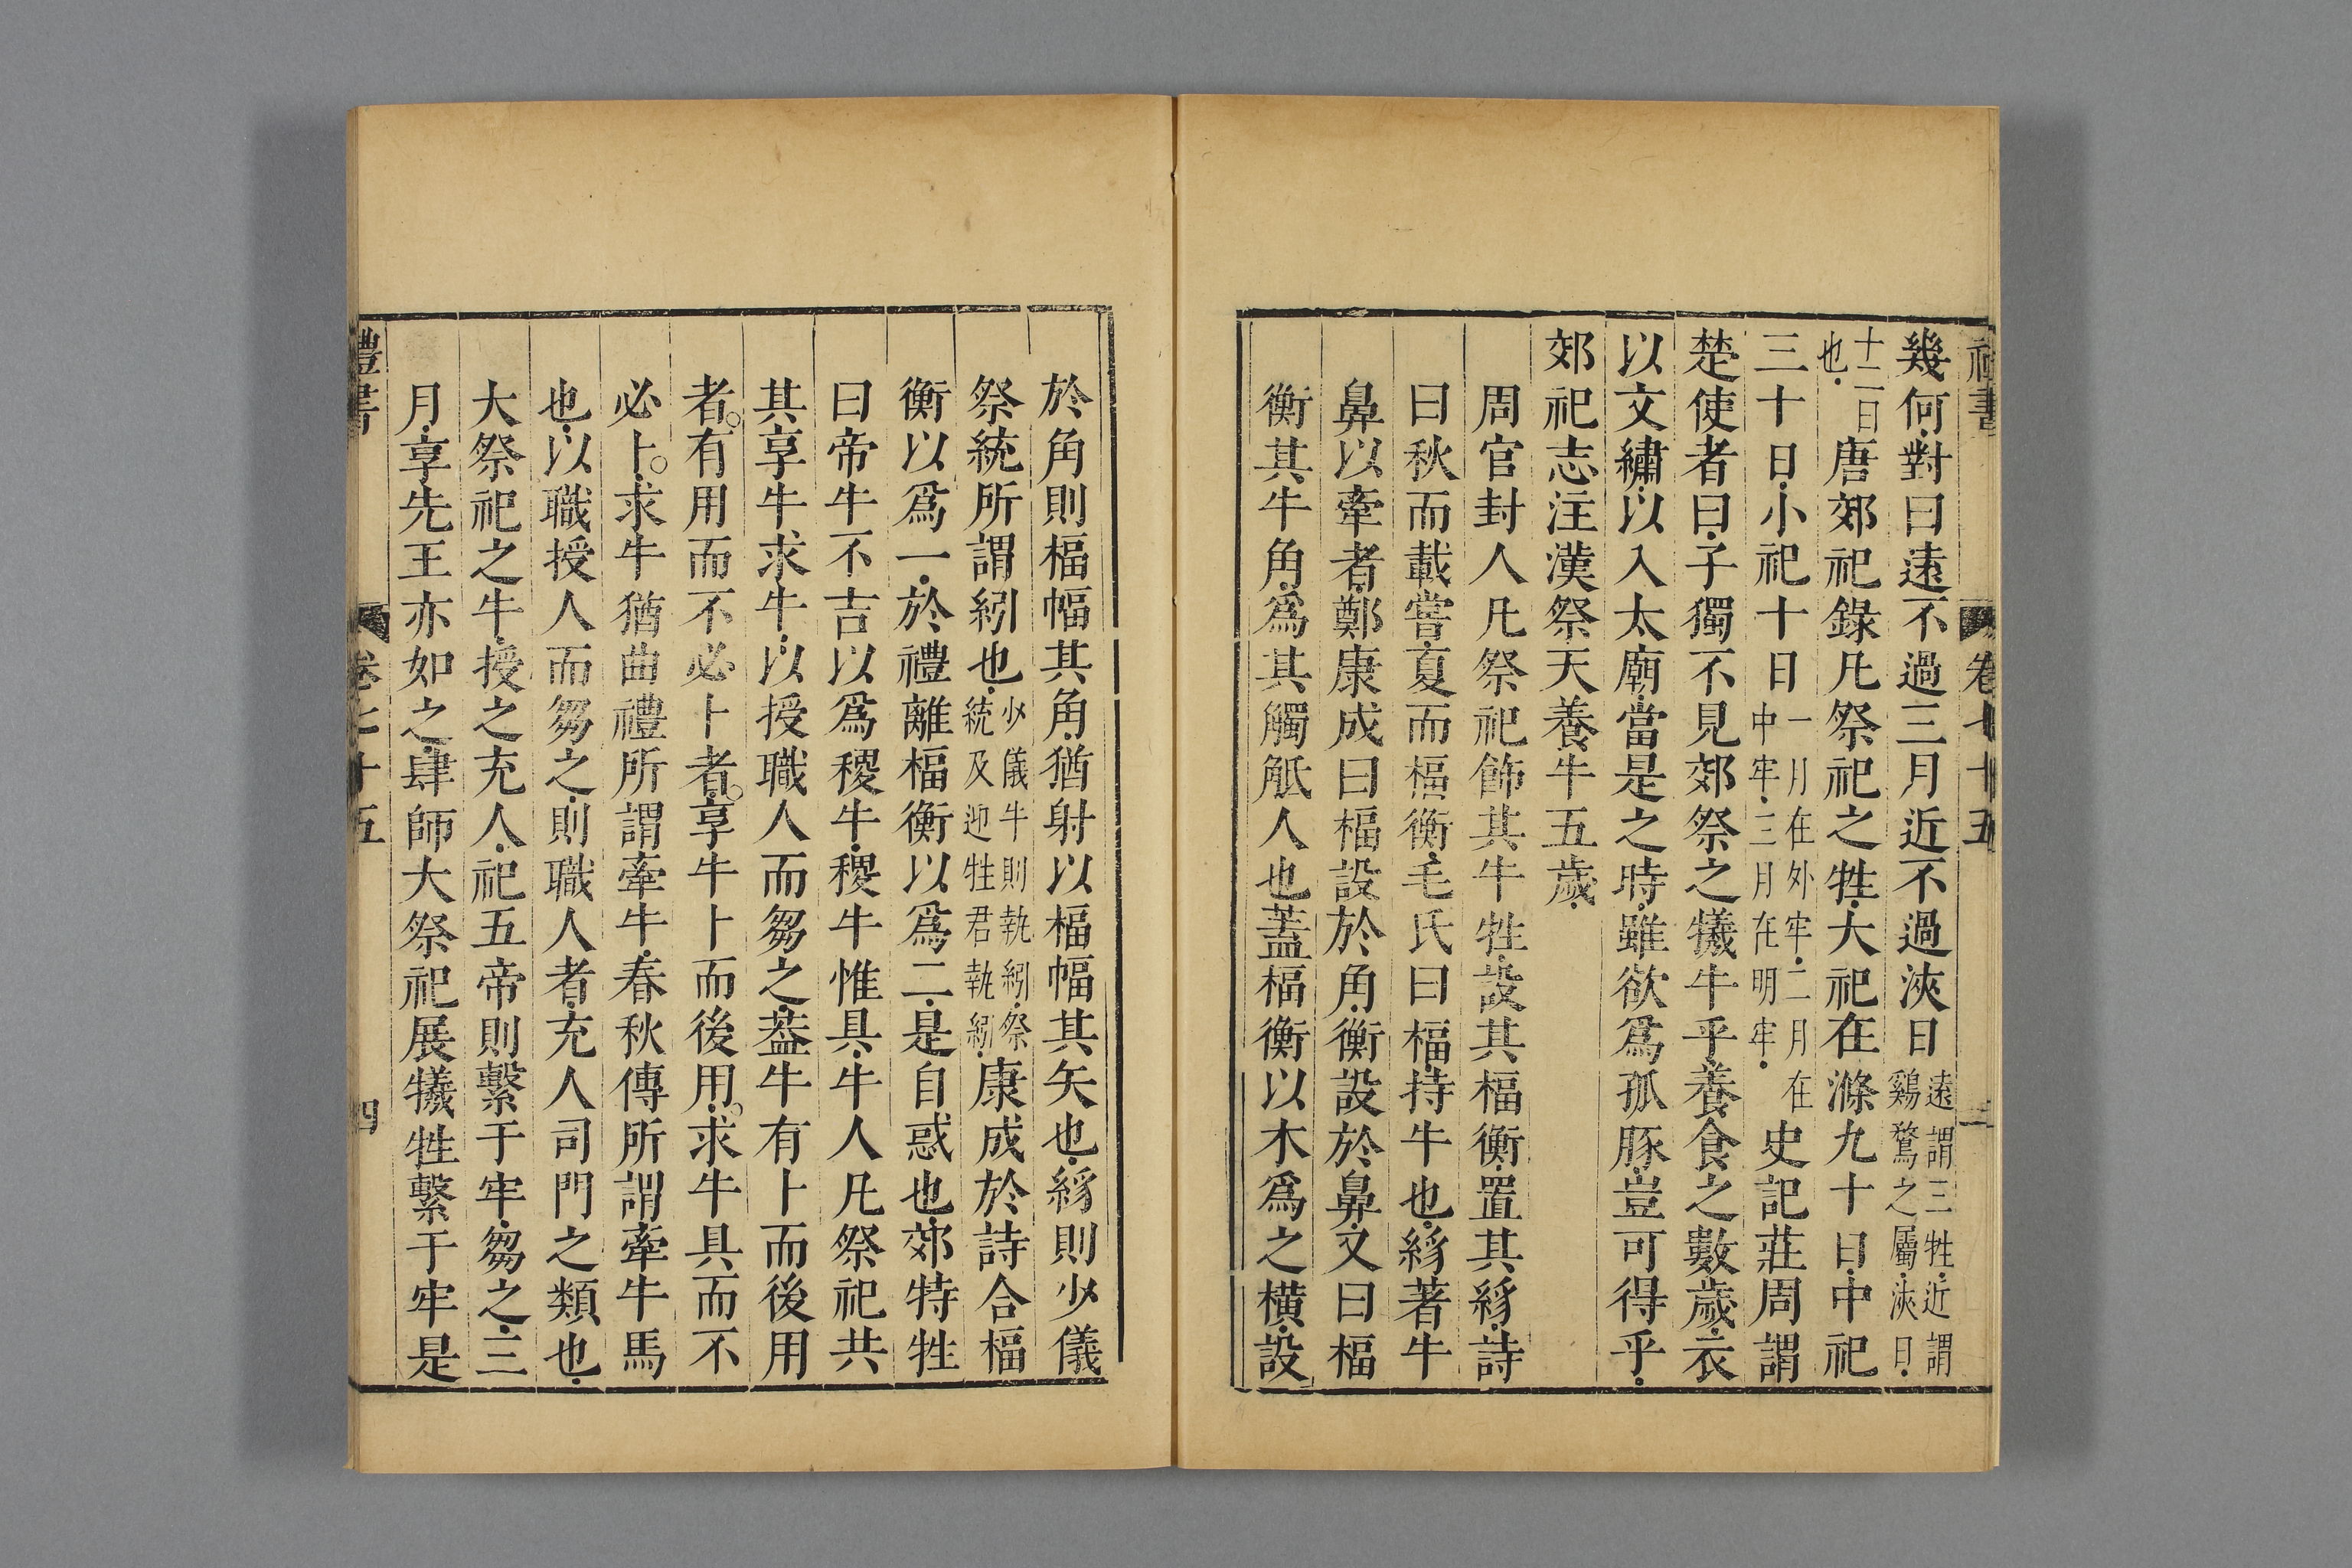 禮書 卷七十五 三
幾何對曰遠不過三月近不過浹日遠謂三牲近謂鷄鶩之屬浹日
十二日也唐郊祀錄凡祭祀之牲大祀在滌九十日中祀
三十日小祀十日一月在外牢二月在中牢三月在明牢史記莊周謂
楚使者曰子獨不見郊祭之犧牛乎養食之數歲衣
以文繡以入太廟當是之時雖欲爲孤豚豈可得乎
郊祀志注漢祭天養牛五歲
周官封人凡祭祀飾其牛牲設其楅衡置其絼詩
曰秋而載嘗夏而楅衡毛氏曰楅持牛也絼著牛
鼻以牽者鄭康成曰楅設於角衡設於鼻又曰楅
衡其牛角爲其觸觝人也蓋楅衡以木爲之橫設
於角則楅幅其角猶射以楅幅其矢也絼則少儀
祭統所謂紖也少儀牛則執紖祭統及迎牲君執紖康成於詩合楅
衡以爲一於禮離楅衡以爲二是自惑也郊特牲
曰帝牛不吉以爲稷牛稷牛惟具牛人凡祭祀共
其享牛求牛以授職人而芻之葢牛有卜而後用
者有用而不必卜者享牛卜而後用求牛具而不
必卜求牛猶曲禮所謂牽牛春秋傳所謂牽牛馬
也以職授人而芻之則職人者充人司門之類也
大祭祀之牛授之充人祀五帝則繫于牢芻之三
月享先王亦如之肆師大祭祀展犧牲繫于牢是
禮書 卷七十五 四